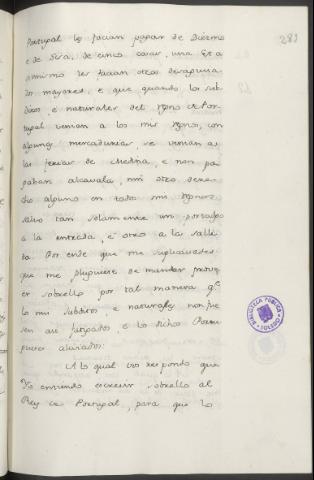 283
Portugal los facian pagar de Diezmo
e de Sisa, de cinco cosas, una. E a
ansimismo les facian otros desaguisa
dos mayores, e que quando los sub
ditos, e naturales del regno de Por
tugal venian a los mis regnos, con
algunas mercadurias, se venian a
las ferias de Medina, e non pa
gaban alcavala, nin otro dere
cho alguno en todos mis regnos
salvo tan solamente un portadgo
a la entrada, e otro a la salli
da. Por ende que me suplicavades
que me pluguiese de mandar prove
er sobrello por tal manera qe
los mis subditos, e naturales non fue
sen asi fatigados, e los dichos Portu
gueses aliviados:
A lo qual vos respondo que
Yo entiendo escrevir sobrello al
Rey de Portugal, para que lo
BIBLIOTECA PÚBLICA
TOLEDO